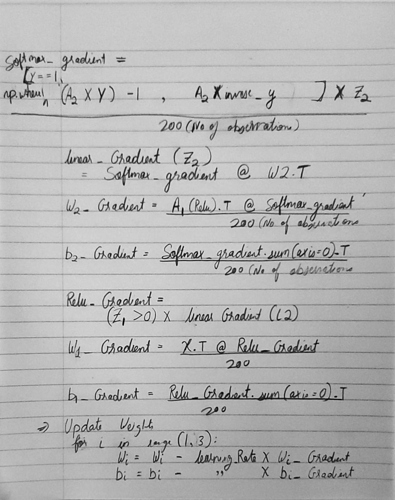 Softmax_gradient =
[y==1,
np.where (A2 X Y) -1 , A2 X inverse_y ] X Z2
200 (No of observations)
linear_Gradient (Z2)
= Softmax_gradient @ W2.T
W2_ Gradient = A1 (Relu).T @ Softmax_gradient
200 (No of observations
b2_ Gradient = Softmax_gradient.sum(axis=0).T
200 (No of observations
Relu_ Gradient =
(Z1 >0) X linear Gradient (L2)
W1_ Gradient = X.T @ Relu_Gradient
200
b1_ Gradient = Relu_Gradient.sum(axis=0).T
200
⇒ Update Weights
for i in range (1,3):
Wi = Wi - learning Rate X Wi_ Gradient
bi = bi - " X bi_ Gradient